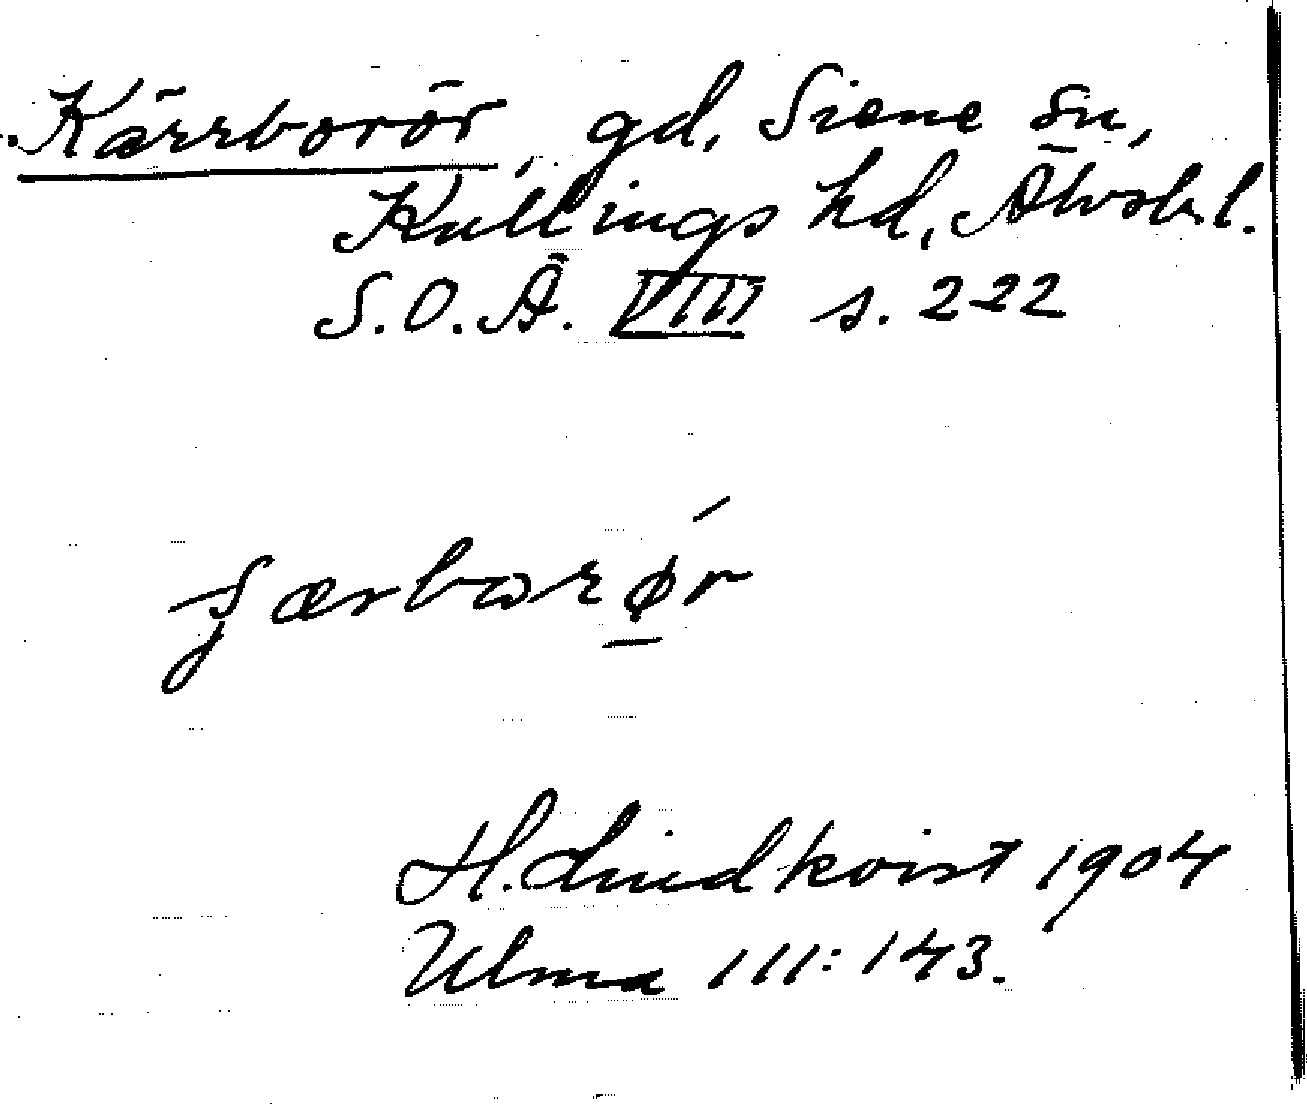 Kärrborör, gd, Siene sn,
Kullings hd, Älvsb. l.
S.O.Ä. VIII s. 222
H. Lindkvist 1904
Ulma 111:143.